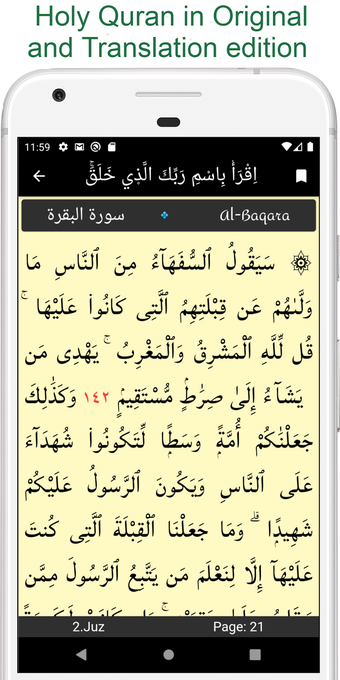 Holy Quran in Original
and Translation edition
11:59
اِقْرَأْ بِاسْمِ رَبِّكَ الَّذِي خَلَقَۚ
سورة البقرة Al-Baqara
۞ سَيَقُولُ ٱلسُّفَهَآءُ مِنَ ٱلنَّاسِ مَا
وَلَّىٰهُمْ عَن قِبْلَتِهِمُ ٱلَّتِى كَانُوا۟ عَلَيْهَا ۚ
قُل لِّلَّهِ ٱلْمَشْرِقُ وَٱلْمَغْرِبُ ۚ يَهْدِى مَن
يَشَآءُ إِلَىٰ صِرَٰطٍۢ مُّسْتَقِيمٍۢ ١٤٢ وَكَذَٰلِكَ
جَعَلْنَٰكُمْ أُمَّةًۭ وَسَطًۭا لِّتَكُونُوا۟ شُهَدَآءَ
عَلَى ٱلنَّاسِ وَيَكُونَ ٱلرَّسُولُ عَلَيْكُمْ
شَهِيدًۭا ۗ وَمَا جَعَلْنَا ٱلْقِبْلَةَ ٱلَّتِى كُنتَ
عَلَيْهَآ إِلَّا لِنَعْلَمَ مَن يَتَّبِعُ ٱلرَّسُولَ مِمَّن
2.Juz Page: 21